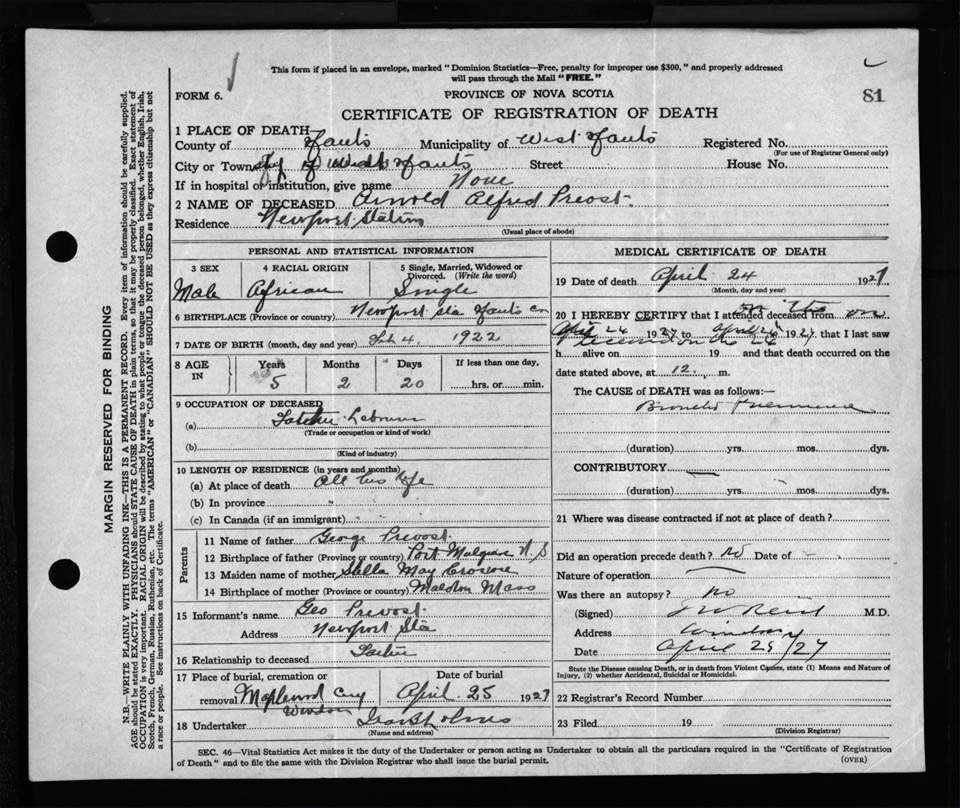 This form if placed in an envelope, marked "Dominion Statistics—Free, penalty for improper use $300," and properly addressed
will pass through the Mail "FREE."
FORM 6.
PROVINCE OF NOVA SCOTIA
81
CERTIFICATE OF REGISTRATION OF DEATH
1 PLACE OF DEATH—
County of Hants Municipality of West Hants Registered No.
(For use of Registrar General only)
City or Town of West Hants Street House No.
If in hospital or institution, give name None
2 NAME OF DECEASED Arnold Alfred Prevost
Residence Newport Station
(Usual place of abode)
PERSONAL AND STATISTICAL INFORMATION
3 SEX 4 RACIAL ORIGIN 5 Single, Married, Widowed or
Divorced. (Write the word)
Male African Single
6 BIRTHPLACE (Province or country) Newport Sta Hants Co
7 DATE OF BIRTH (month, day and year) Feb 4. 1922
8 AGE IN Years Months Days If less than one day,
5 2 20 hrs. or min.
9 OCCUPATION OF DECEASED
(a) Labourer
(Trade or occupation or kind of work)
(b)
(Kind of industry)
10 LENGTH OF RESIDENCE (in years and months)
(a) At place of death All his life
(b) In province "
(c) In Canada (if an immigrant)
Parents
11 Name of father George Prevost
12 Birthplace of father (Province or country) Port Malgrave N.S
13 Maiden name of mother Stella May Browne
14 Birthplace of mother (Province or country) Maldon Mass
15 Informant's name Geo Prevost
Address Newport Sta
16 Relationship to deceased Father
17 Place of burial, cremation or Date of burial
removal Maplewood Cmy April 25 1927
Windsor
18 Undertaker
(Name and address)
MEDICAL CERTIFICATE OF DEATH
19 Date of death April 24 1927
(Month, day and year)
20 I HEREBY CERTIFY that I attended deceased from
April 24 1927 to April 24 1927, that I last saw
h alive on 19 and that death occurred on the
date stated above, at 12 m.
The CAUSE of DEATH was as follows:—
Broncho Pneumonia
(duration) yrs. mos. dys.
CONTRIBUTORY
(duration) yrs. mos. dys.
21 Where was disease contracted if not at place of death?
Did an operation precede death? No Date of
Nature of operation
Was there an autopsy? No
(Signed) J W Reid M.D.
Address Windsor
Date April 25/27
State the Disease causing Death, or in death from Violent Causes, state (1) Means and Nature of
Injury, (2) whether Accidental, Suicidal or Homicidal.
22 Registrar's Record Number
23 Filed 19
(Division Registrar)
SEC. 46—Vital Statistics Act makes it the duty of the Undertaker or person acting as Undertaker to obtain all the particulars required in the "Certificate of Registration
of Death" and to file the same with the Division Registrar who shall issue the burial permit. (OVER)
MARGIN RESERVED FOR BINDING
N.B.—WRITE PLAINLY WITH UNFADING INK—THIS IS A PERMANENT RECORD. Every item of information should be carefully supplied.
AGE should be stated EXACTLY. PHYSICIANS should STATE CAUSE OF DEATH in plain terms, so that it may be properly classified. Exact statement of
OCCUPATION is very important. RACIAL ORIGIN will be described by stating to what people or tongue the deceased person belonged, whether English, Irish,
Scotch, French, German, Russian, Ruthenian, etc. The terms "AMERICAN" or "CANADIAN" SHOULD NOT BE USED as they express citizenship but not
a race or people. See instructions on back of Certificate.